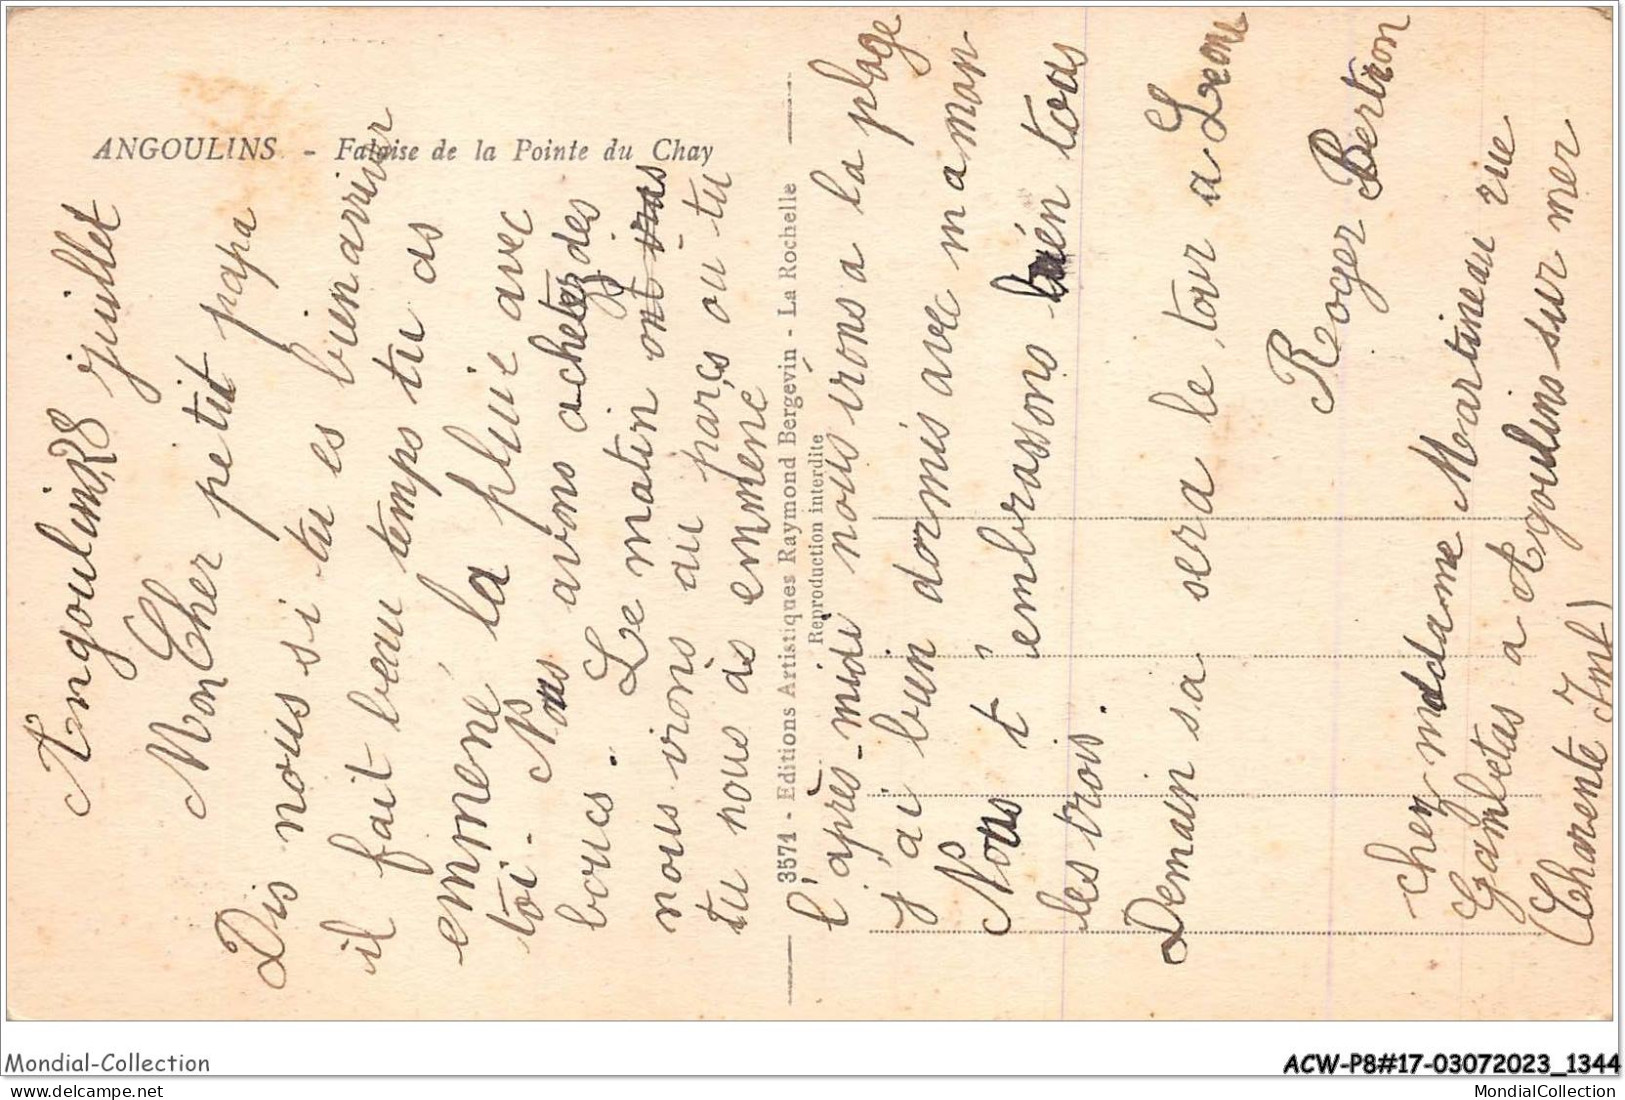 ANGOULINS - Falaise de la Pointe du Chay
3571 - Editions Artistiques Raymond Bergevin - La Rochelle
Reproduction interdite
Angoulins, 28 juillet
Mon Cher petit papa
Dis nous si tu es bien arriver
il fait beau temps tu as
emmené la pluie avec
toi. Nous avons achetez des
boucs. Le matin ont vas
nous irons au parcs ou tu
tu nous as emmené
l'après-midi nous irons a la plage
j'ai buin dormis avec maman
Nous t'embrassons bién tous
les trois.
Demain sa sera le tour a Leone
Roger Bertron
chez madame Martineau rue
Gambetas a Agoulins sur mer
(Charente Inf)
Mondial-Collection
ACW-P8#17-03072023_1344
MondialCollection